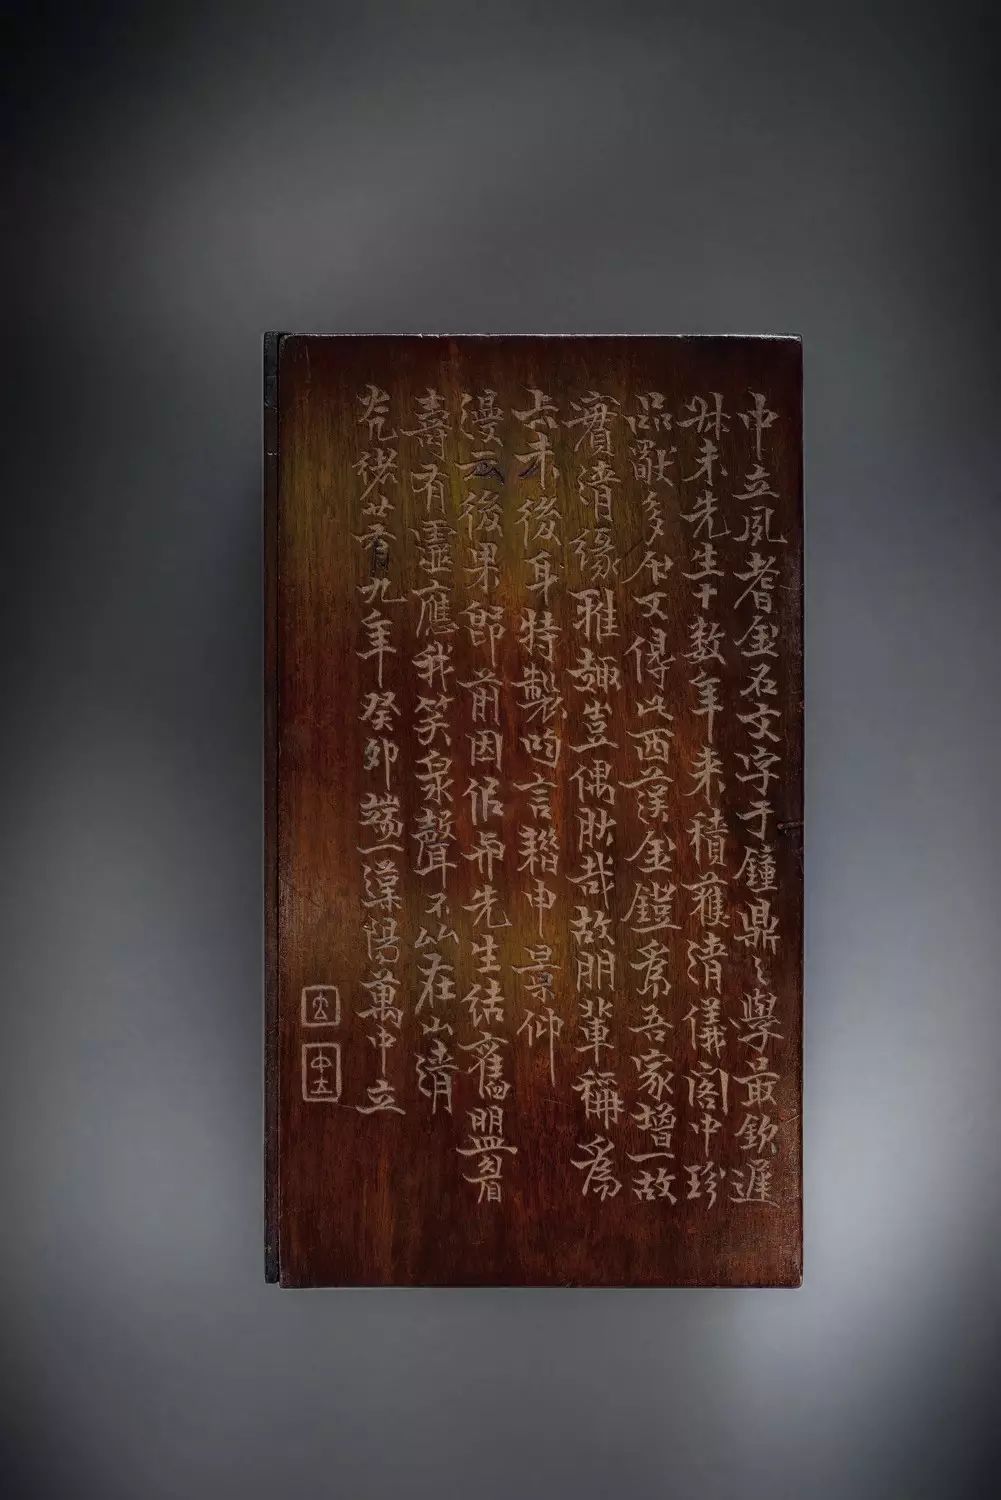 中立夙耆金石文字于鐘鼎之學最欽遲
叔未先生十数年来積蒦清儀閣中珍
品歇多今又得此西漢金鐙為吾家增一故
實清緣雅趣豈偶肰哉故朋輩稱為
去未後身特製昀言藉申景仰
漫云後果即前因佀與先生结舊盟看
壽有靈應我笑泉聲不厶在山清
光緒廿有九年癸卯端一漢陽萬中立
中立